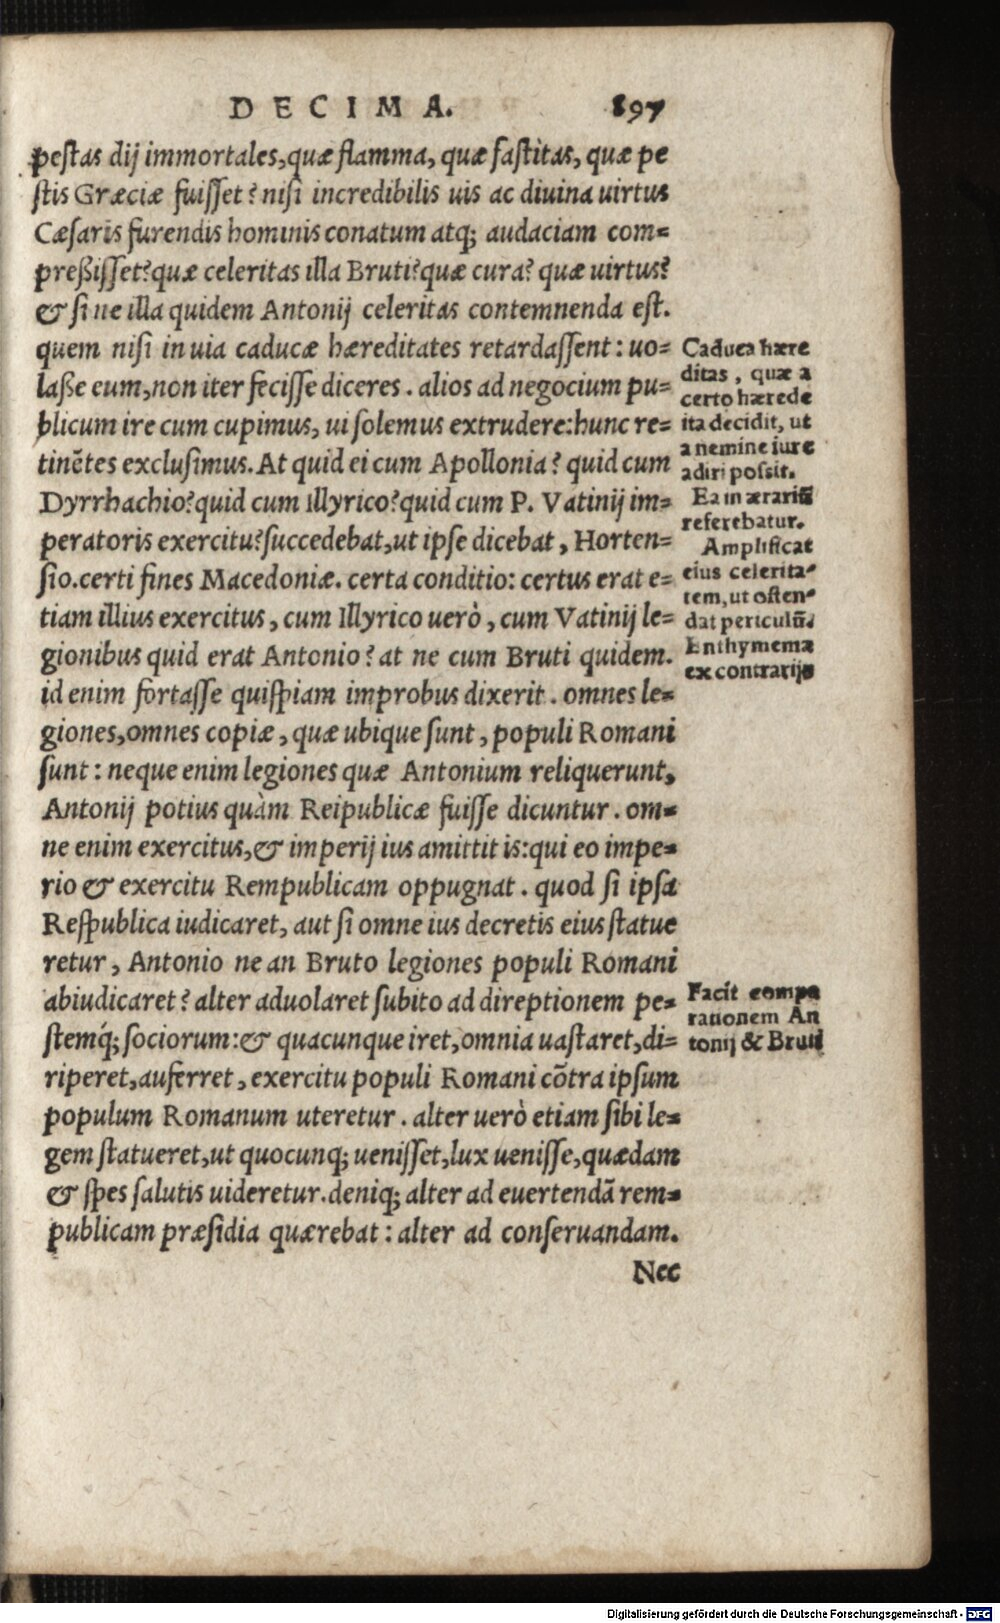 DECIMA. 897
pestas dij immortales, quæ flamma, quæ fastitas, quæ pe
stis Græciæ fuisset? nisi incredibilis uis ac diuina uirtus
Cæsaris furendis hominis conatum atq; audaciam com=
preßisset? quæ celeritas illa Bruti? quæ cura? quæ uirtus?
& si ne illa quidem Antonij celeritas contemnenda est.
quem nisi in uia caducæ hæreditates retardassent: uo=
laße eum, non iter fecisse diceres. alios ad negocium pu=
blicum ire cum cupimus, ui solemus extrudere: hunc re=
tinētes exclusimus. At quid ei cum Apollonia? quid cum
Dyrrhachio? quid cum Illyrico? quid cum P. Vatinij im=
peratoris exercitu? succedebat, ut ipse dicebat, Horten=
sio. certi fines Macedoniæ. certa conditio: certus erat e=
tiam illius exercitus, cum Illyrico uerò, cum Vatinij le=
gionibus quid erat Antonio? at ne cum Bruti quidem.
id enim fortasse quispiam improbus dixerit. omnes le=
giones, omnes copiæ, quæ ubique sunt, populi Romani
sunt: neque enim legiones quæ Antonium reliquerunt,
Antonij potius quàm Reipublicæ fuisse dicuntur. om=
ne enim exercitus, & imperij ius amittit is: qui eo impe=
rio & exercitu Rempublicam oppugnat. quod si ipsa
Respublica iudicaret, aut si omne ius decretis eius statue
retur, Antonio ne an Bruto legiones populi Romani
abiudicaret? alter aduolaret subito ad direptionem pe=
stemq́; sociorum: & quacunque iret, omnia uastaret, di=
riperet, auferret, exercitu populi Romani cōtra ipsum
populum Romanum uteretur. alter uerò etiam sibi le=
gem statueret, ut quocunq; uenisset, lux uenisse, quædam
& spes salutis uideretur. deniq; alter ad euertendā rem=
publicam præsidia quærebat: alter ad conseruandam.
Nec
Caduca hære
ditas, quæ a
certo hærede
ita decidit, ut
a nemine iure
adiri possit.
Ea in ærariū
referebatur.
Amplificat
eius celerita=
tem, ut osten=
dat periculū.
Enthymema
ex contrarijs
Facit compa
rationem An
tonij & Bruti
Digitalisierung gefördert durch die Deutsche Forschungsgemeinschaft - DFG